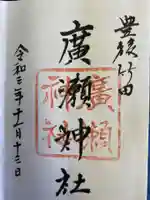 豊後竹田
廣瀬神社
令和三年十一月十三日
廣瀬神社